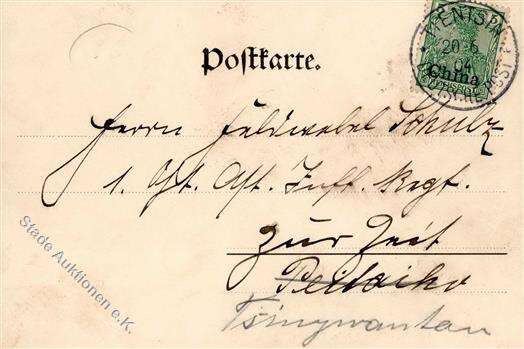 Postkarte.
TIENTSIN
20 6
04
China
Herrn Feldwebel Schulz
1. Ost. Aft. Inff. Regt.
zur Zeit
Peitaiho
Tsingwantau
Stade Auktionen e.K.